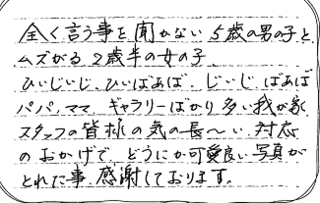 全く言う事を聞かない5歳の男の子と
ムズがる2歳半の女の子。
ひいじいじ、ひいばあば、じいじ、ばあば
パパ、ママ、ギャラリーばかり多い我が家
スタッフの皆様の気の長〜い対応
のおかげで、どうにか可愛良い写真が
とれた事、感謝しております。